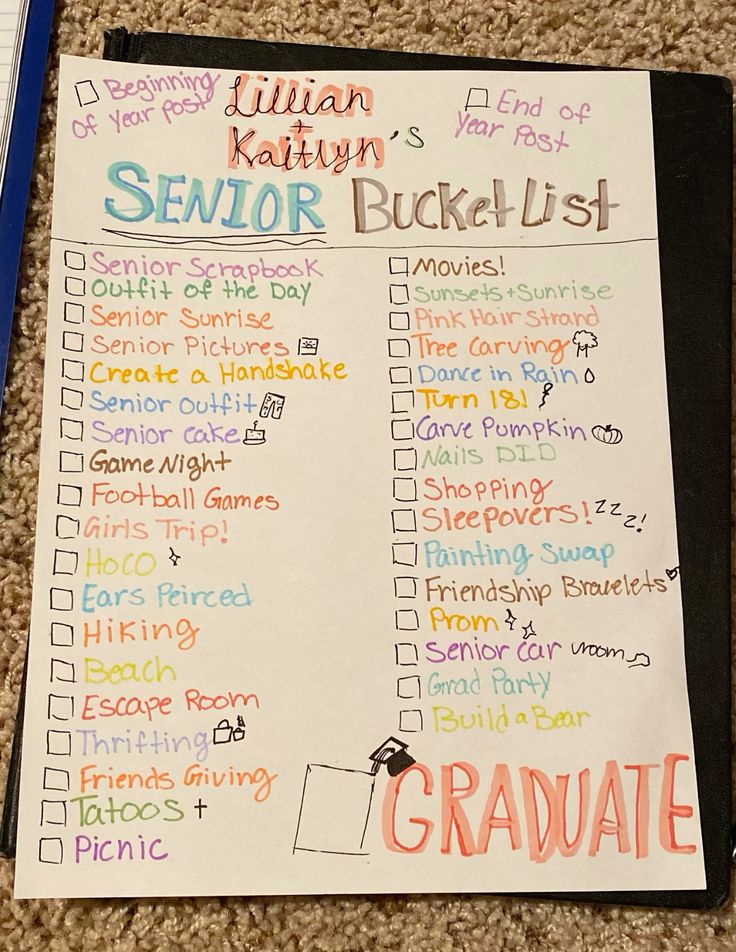 Beginning of Year Post
Lillian
+
Kaitlyn's
End of
Year Post
SENIOR Bucket List
Senior Scrapbook
Outfit of the Day
Senior Sunrise
Senior Pictures
Create a Handshake
Senior outfit
Senior cake
Game Night
Football Games
Girls Trip!
Hoco
Ears Peirced
Hiking
Beach
Escape Room
Thrifting
Friends Giving
Tatoos +
Picnic
Movies!
Sunsets + Sunrise
Pink Hair Strand
Tree Carving
Dance in Rain
Turn 18!
Carve Pumpkin
Nails DID
Shopping
Sleepovers! zzz!
Painting Swap
Friendship Bravelets
Prom
Senior car vroom
Grad Party
Build a Bear
GRADUATE